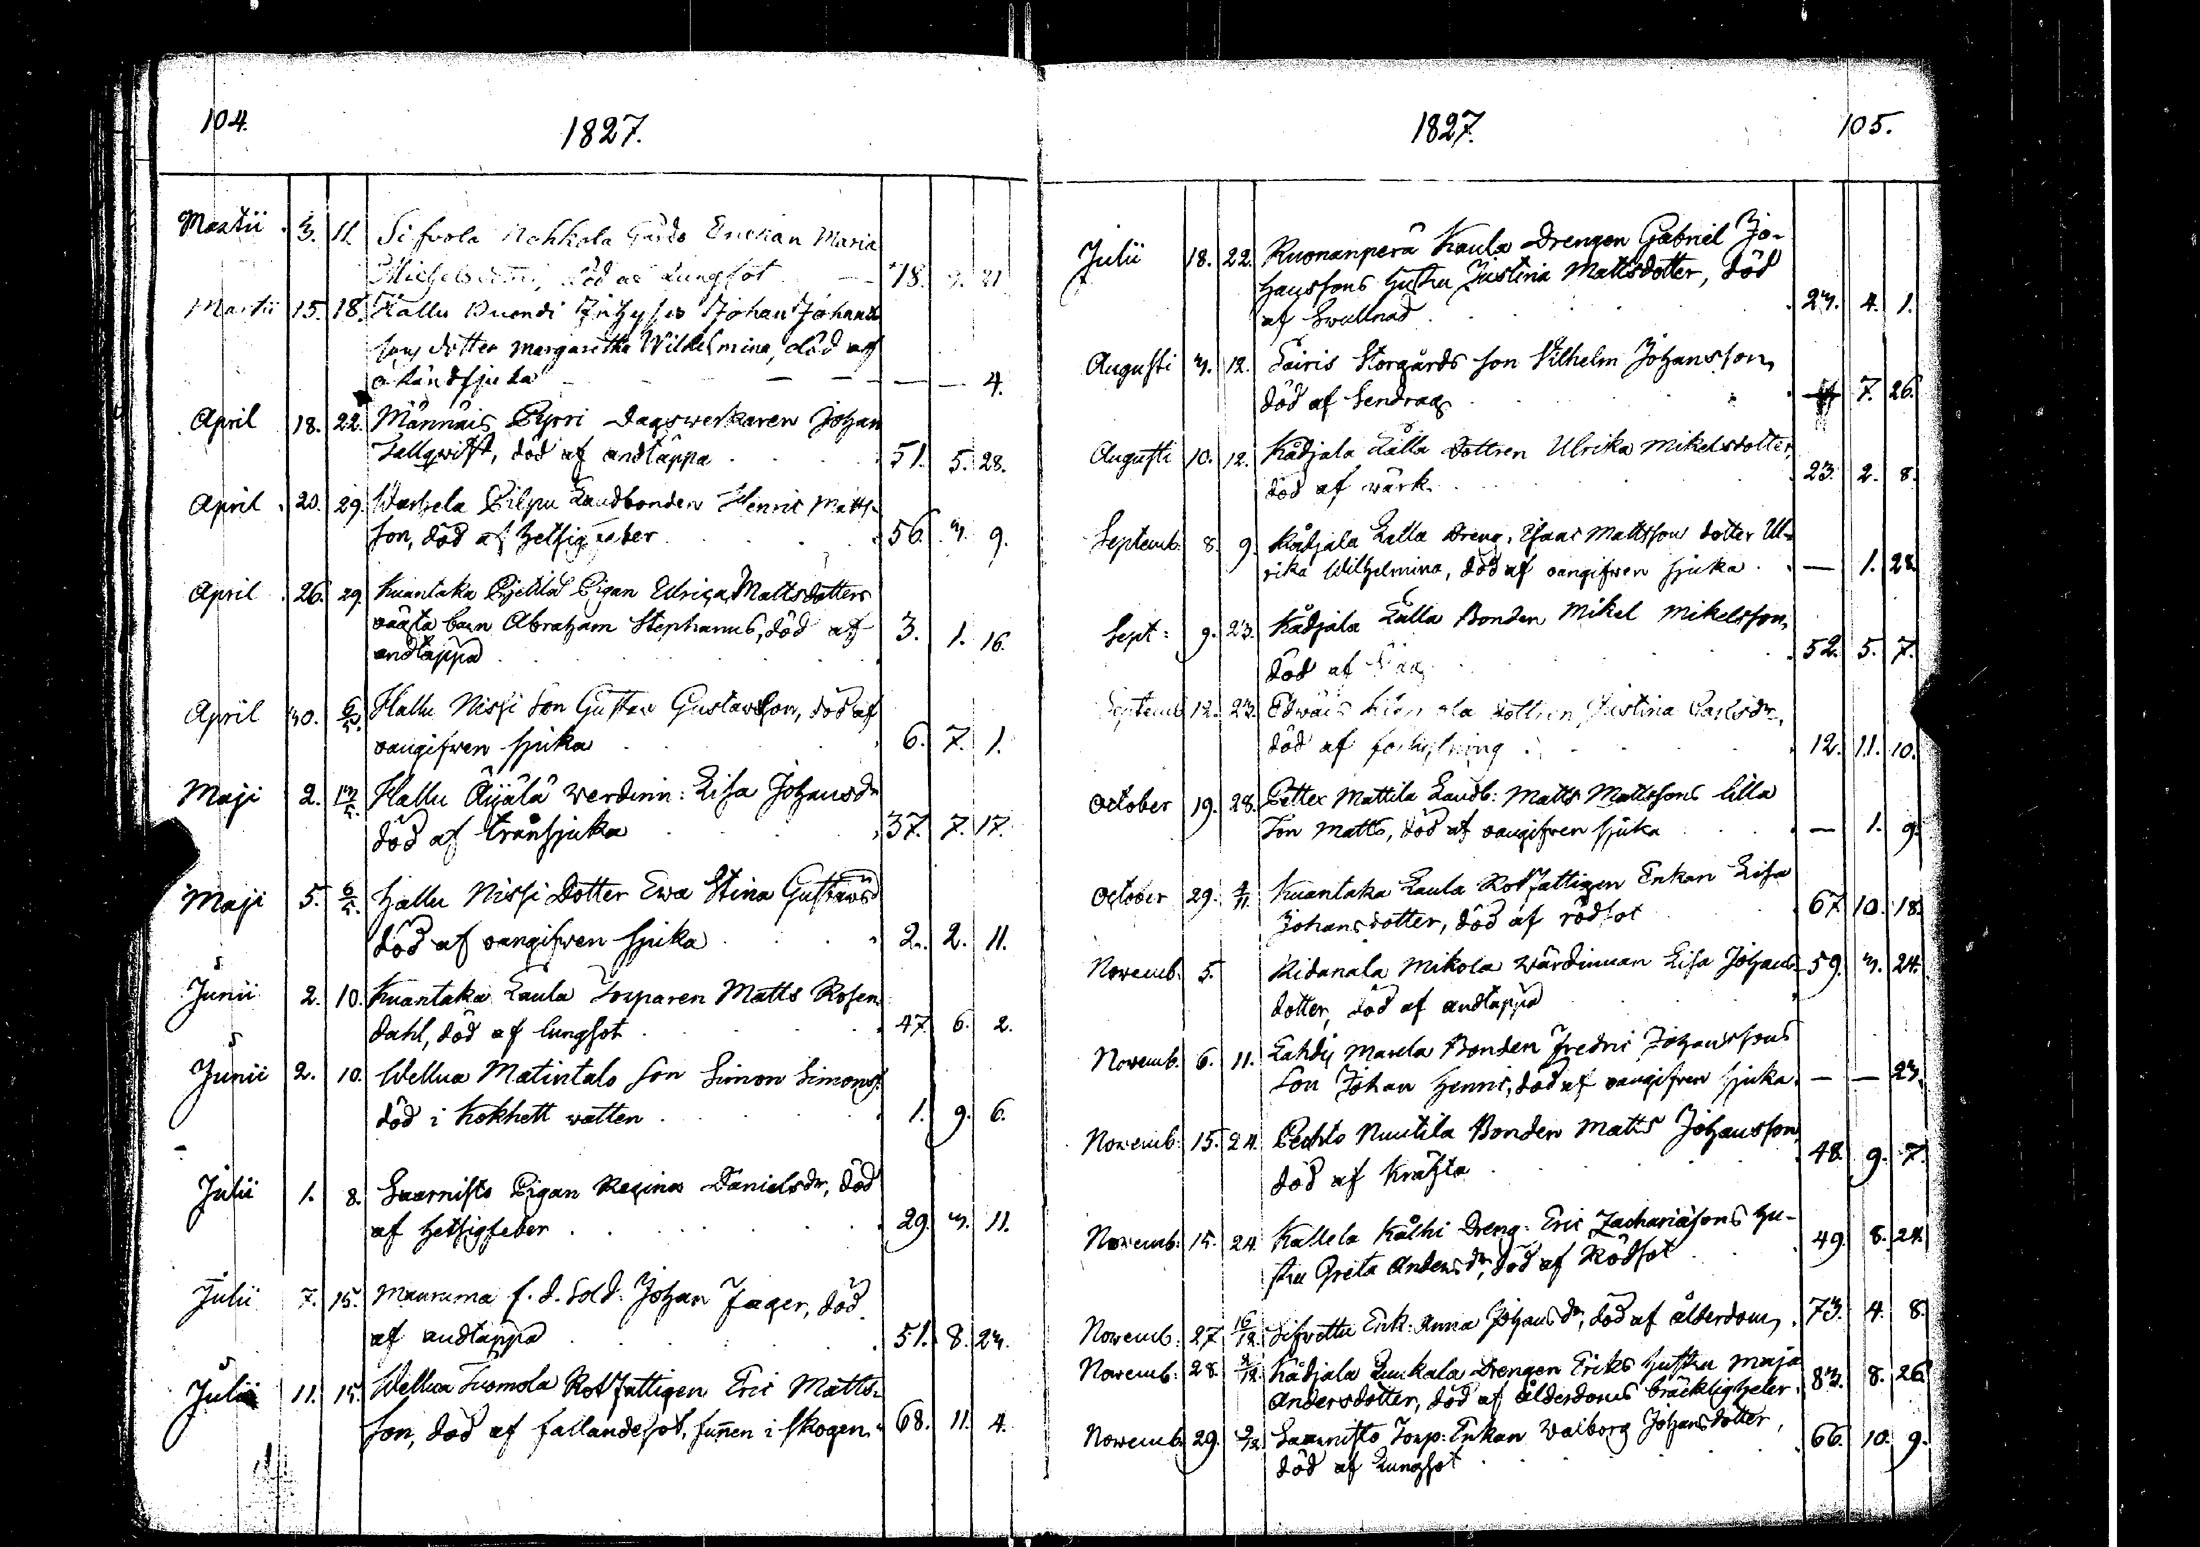 104.
1827.
Martii 3. 11. Sifvola Nohkola Gårds Enckan Maria
Michelsdotter, död af Lungsot 78. 3. 21
Martii 15. 18. Hallu Inhyses Johan Johans
sons dotter Margaretha Wilhelmina, död af
okänd sjuka — — 4.
April 18. 22. Männäis Pyrri Dagswerkaren Johan
Hallqwist, död af andtäppa 51. 5. 28.
April 20. 29. Warhela Pilpu Landbonden Henric Matts-
son, död af hetsig feber 56. 3. 9.
April 26. 29. Kuantaka Pigan Ulrica Mattsdotters
oäkta barn Abraham Stephanus, död af
andtäppa 3. 1. 16.
April 30. 6/5. Hallu Nissi Son Gustav Gustavsson, död af
oangifwen sjuka 6. 7. 1.
Maji 2. 13/5. Hallu Äijälä Werdinn: Lisa Johansdr
död af trånsjuka 37. 7. 17.
Maji 5. 6/5. Hallu Nissi Dotter Ewa Stina Gustavsd
död af oangifwen sjuka 2. 2. 11.
Junii 2. 10. Kuantaka Laula Torparen Matts Rosen
dahl, död af lungsot 47. 6. 2.
Junii 2. 10. Wellua Matintalo Son Simon Simonss.
död i kokhett watten 1. 9. 6.
Julii 1. 8. Saarnisto Pigan Regina Danielsdr, död
af hetsigfeber 29. 3. 11.
Julii 7. 15. Mauruma f. d. Sold: Johan Jager, död
af andtäppa 51. 8. 23.
Julii 11. 15. Wellua Tuomola Rotfattigen Eric Matts-
son, död af fallandesot, funnen i skogen 68. 11. 4.
1827.
105.
Julii 18. 22. Ruonanperä Kaula Drengen Gabriel Jo-
hanssons hustru Justina Mattsdotter, död
af Swullnad 23. 4. 1.
Augusti 3. 12. Lairis Storgårds son Vilhelm Johansson,
död af Sendrag 7. 26.
Augusti 10. 12. Kådjala Lalla dottren Ulrika Mikelsdotter,
död af wärk 23. 2. 8.
Septemb. 8. 9. Kådjala Lalla Dreng. Isaac Mattsson dotter Ul-
rika Wilhelmina, död af oangifwen sjuka — 1. 28.
Sept: 9. 23. Kådjala Lalla Bonden Mikel Mikelsson,
död af 52. 5. 7.
Septemb 12. 23. Edwäis dottren Justina Carlsdr,
död af 12. 11. 10.
October 19. 28. Petter Mattila Landb: Matts Mattssons lilla
Son Matts, död af oangifwen sjuka — 1. 9.
October 29. 4/11. Kuantaka Laula Rotfattigen Enkan Lisa
Johansdotter, död af rödsot 67. 10. 18.
Novemb. 5. Ridanala Mikola Wärdinnan Lisa Johans-
dotter, död af andtäppa 59. 3. 24.
Novemb. 6. 11. Lahdij Marela Bonden Fredric Johanssons
Son Johan Henric, död af oangifwen sjuka — — 23.
Novemb: 15. 24. Pechto Nuutila Bonden Matts Johansson,
död af kräfta 48. 9. 7.
Novemb: 15. 24. Kallela Kålhi Dreng: Eric Zachariäsons hu-
stru Greta Andersdr, död af Rödsot 49. 8. 24.
Novemb: 27 16/12. Sifvettu Enk: Anna Johansdr, död af ålderdom, 73. 4. 8.
Novemb: 28. 2/12. Kådjala Luukala Drengen Eriks hustru Maja
Andersdotter, död af ålderdoms bräckligheter 83. 8. 26
Novemb. 29. 2/12. Saarnisto Torp: Enkan Walborg Johansdotter,
död af Lungsot 66. 10. 9.